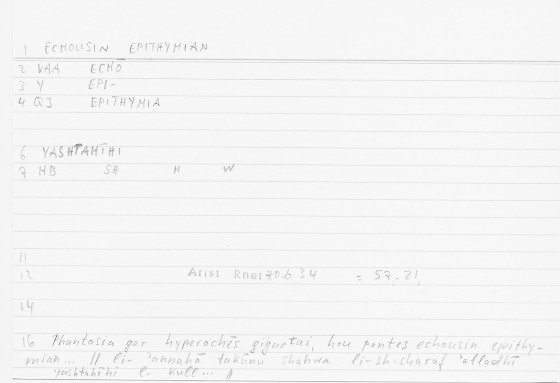 1 ECHOUSIN EPITHYMIAN
2 VAA ECHŌ
3 Y EPI-
4 QJ EPITHYMIA
6 YASHTAHĪHI
7 HB SH H W
11
12 Arist Rhet 70b 34 = 57, 21
14
16 Phantasia gar hyperochēs gignetai, hou pantes echousin epithy-
mian... // li- 'annahā takūnu shahwa li-sh-sharaf 'alladhī
yashtahīhi l- kull... //